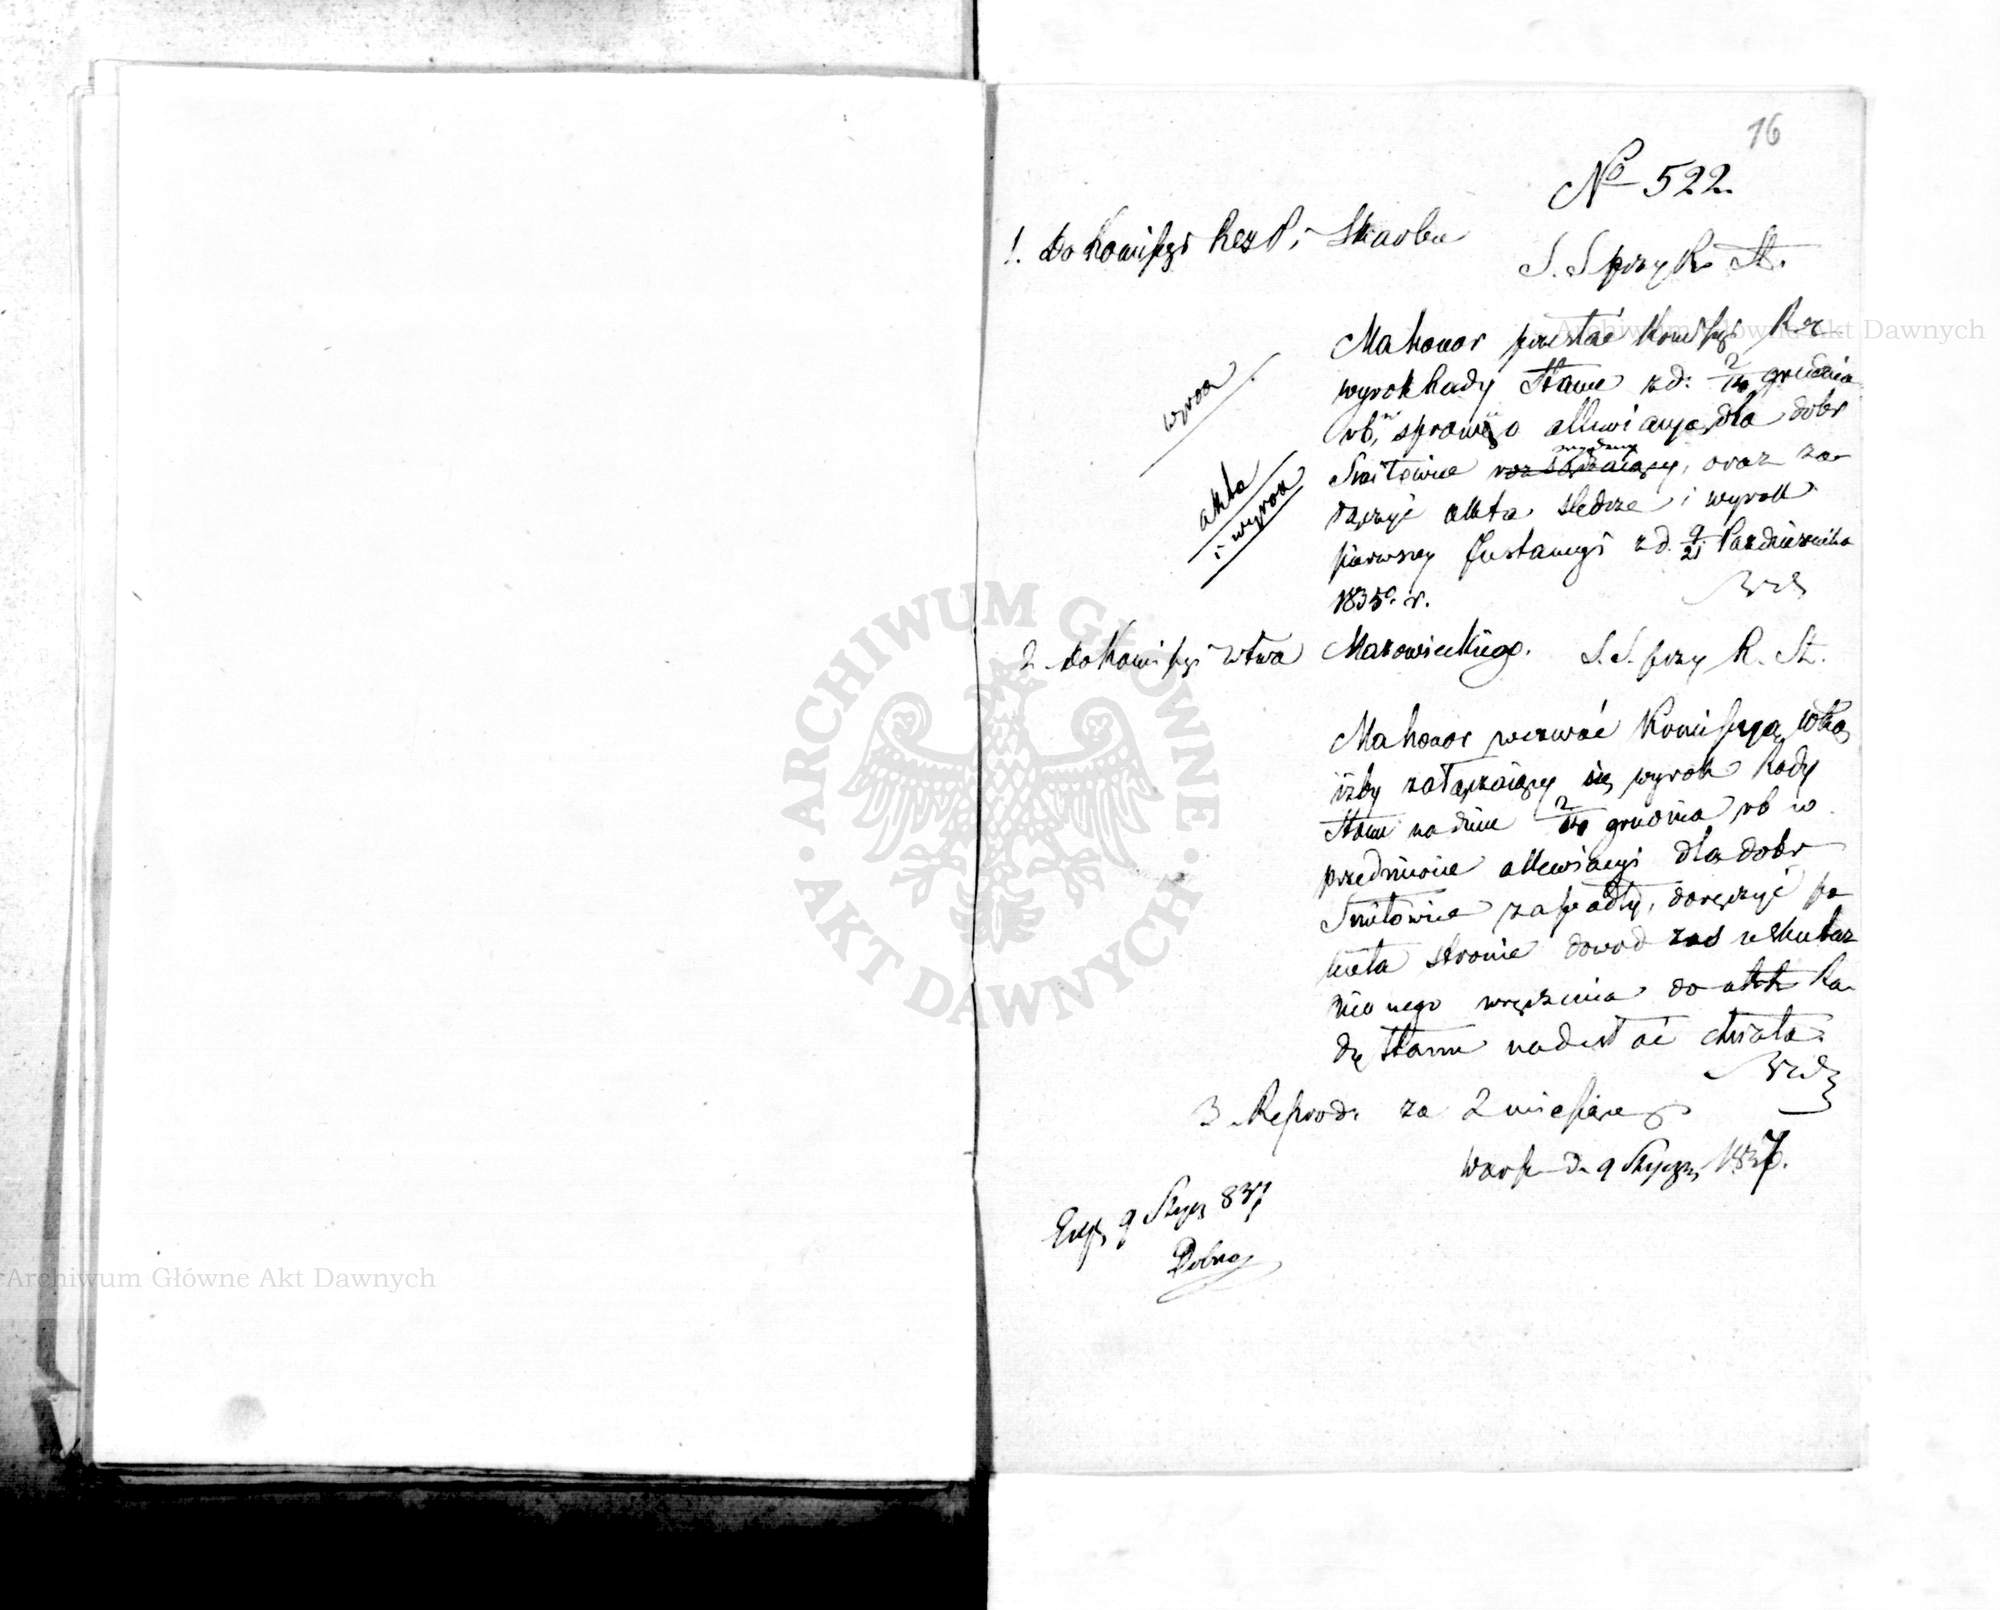 16
№ 522.
1. do Komissyi Rz P. i Skarbu
S. S przy R. St.
Ma honor przesłać Komissyi Rz
wyrok Rady Stanu z d. 2/14 grudnia
rb, w sprawie o allewiacyą dla dobr
Smiłowice wydany, oraz za
łączyć akta śledcze i wyrok
pierwszey Instancyi z d. 9/21 Października
1835 r.
wyrok
akta
i wyrok
2. do Komissyi Wtwa Mazowieckiego.
S. S. przy R. St.
Ma honor wezwać Komissyą Wtką
iżby załączaiący się wyrok Rady
Stanu na dniu 2/14 grudnia rb w
przedmiocie allewiacyi dla dobr
Smiłowice zapadły, doręczyć po
wieła stronie dowod zaś uskutecz
nionego wręczenia do Ra
dy Stanu nadesłać chciała.
3 Reprod. za 2 miesiące
Warsz d. 9 Stycz. 1837.
Exp. 9 Stycz 837
Archiwum Główne Akt Dawnych
Archiwum Główne Akt Dawnych
ARCHIWUM GŁÓWNE
AKT DAWNYCH